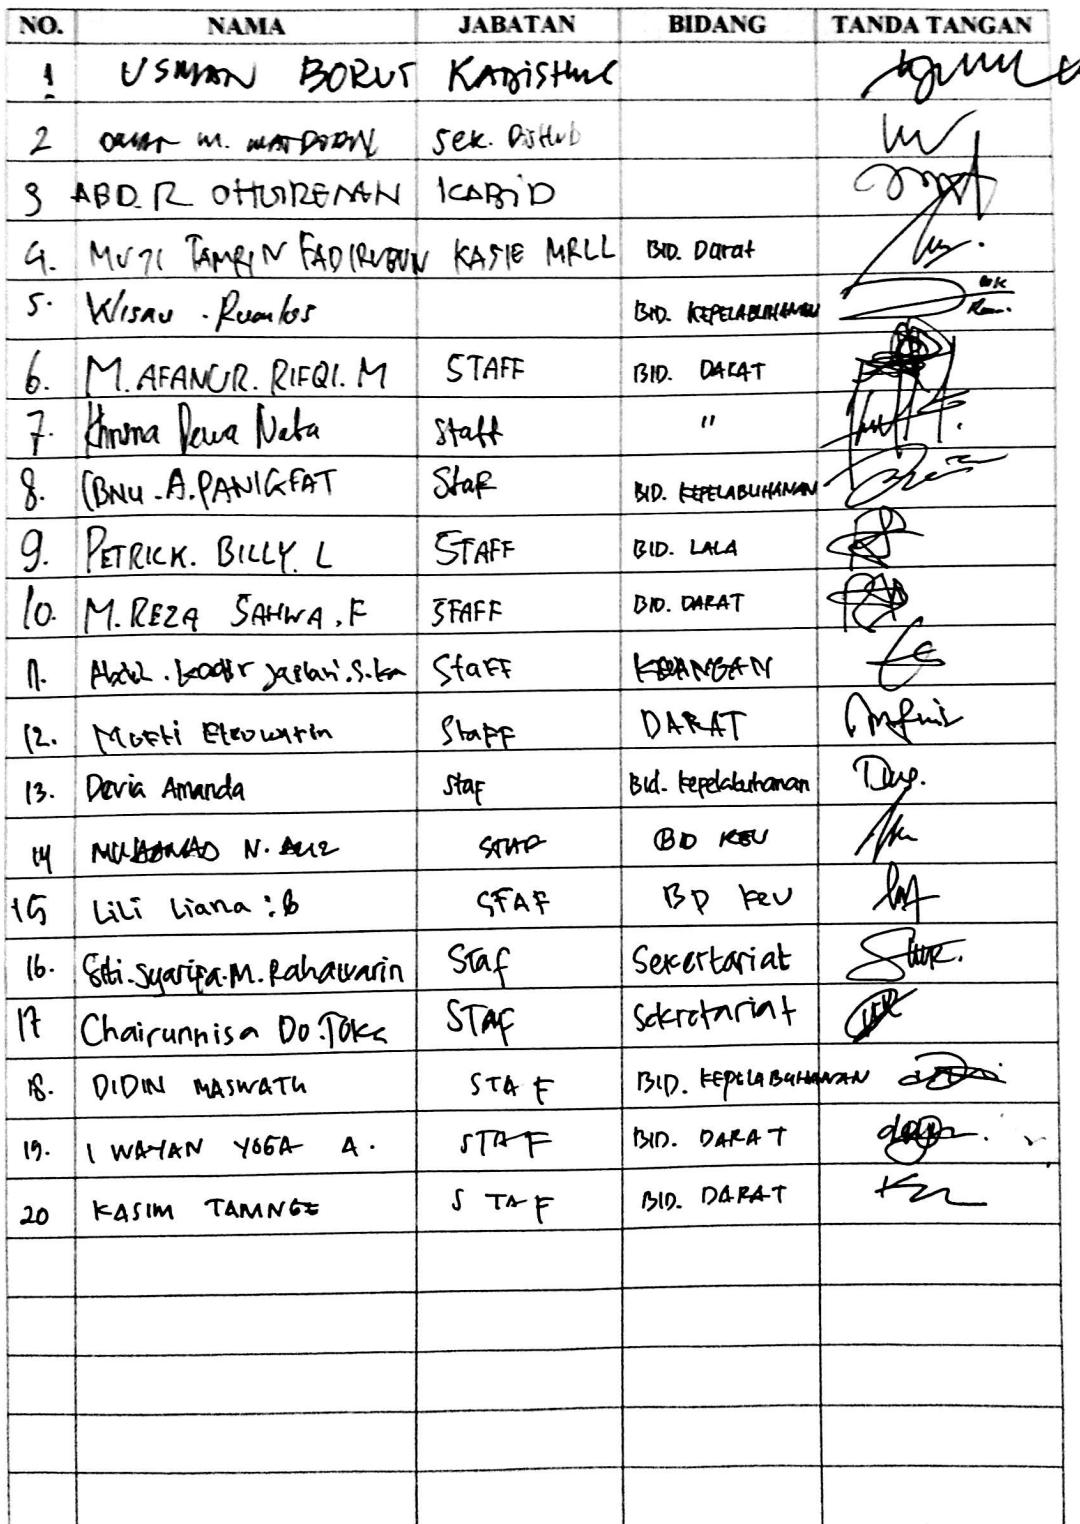 NO. NAMA JABATAN BIDANG TANDA TANGAN
1 USMAN BORUT KADISHUB
2 M. sek. DisHub
3 ABD. R OHOIRENAN KABID
4. MUTI TAMRIN FADIRUBUN KASIE MRLL BID. Darat
5. Wisau . BID. KEPELABUHANAN
6. M. AFANUR. RIFQI. M STAFF BID. DARAT
7. Dewa Nata staff "
8. IBNU . A. PANIGFAT Staf BID. KEPELABUHANAN
9. PETRICK. BILLY. L STAFF BID. LALA
10. M. REZA SAHWA . F STAFF BID. DARAT
11. Abdul . kadir Staff KEUANGAN
12. Mufti Staff DARAT
13. Devia Amanda Staf Bid. kepelabuhanan
14 MUHAMAD N. STAF BID KEU
15 Lili Liana : B STAF BD KEU
16. Siti. Syarifa. M. Rahawarin Staf Sekertariat
17 Chairunnisa Do. Toka STAF Sekretariat
18. DIDIN MASWATU STAF BID. KEPELABUHANAN
19. I WAYAN YOGA A. STAF BID. DARAT
20 KASIM TAMNGE STAF BID. DARAT